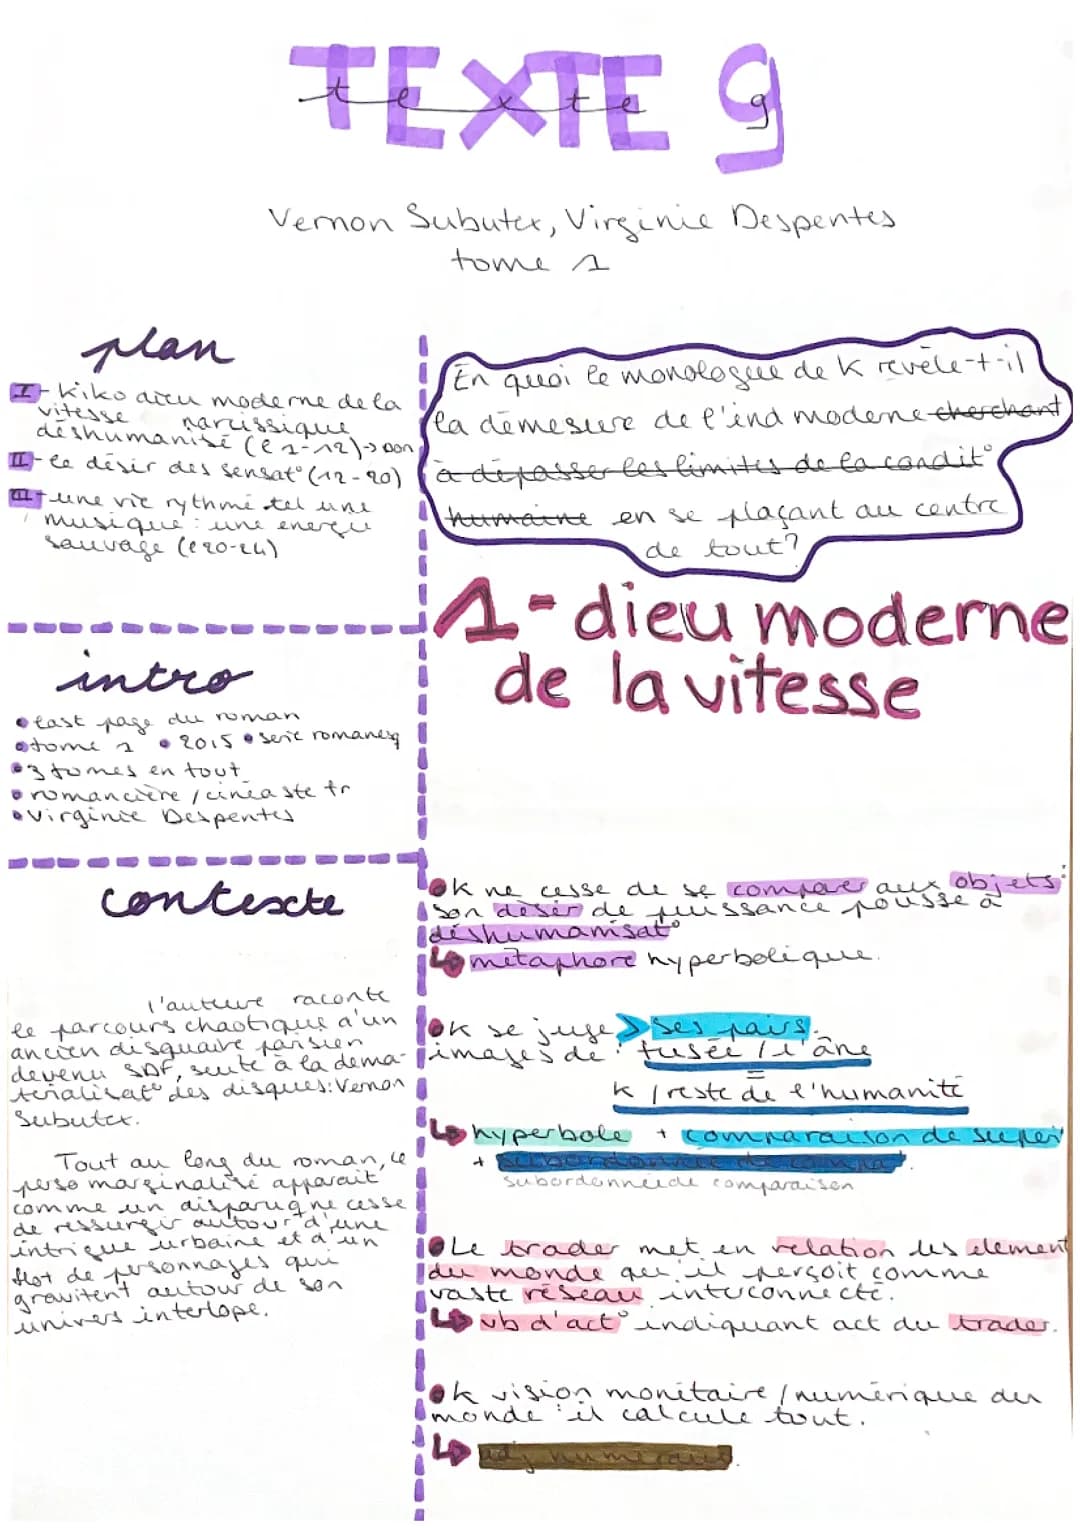 TEXTE 9
texte 9
Vernon Subutex, Virginie Despentes
tome 1
plan
I - Kiko dieu moderne de la
vitesse narcissique
déshumanisé (l 1-12)
II - le désir des sensat° (12-20)
III - une vie rythmé tel une
musique : une énergie
sauvage (l 20-24)
intro
• last page du roman
• tome 1 • 2015 • série romanesq
• 3 tomes en tout
• romancière / cinéaste fr
• Virginie Despentes
contexte
l'auteure raconte
le parcours chaotique d'un
ancien disquaire parisien
devenu SDF, suite à la dema-
térialisat° des disques: Vernon
Subutex.
Tout au long du roman, ce
perso marginalisé apparait
comme un disparu q ne cesse
de ressurgir autour d'une
intrigue urbaine et d'un
flot de personnages qui
gravitent autour de son
univers interlope.
En quoi le monologue de K revèle-t-il
la démesure de l'ind moderne cherchant
à dépasser les limites de la condit°
humaine en se plaçant au centre
de tout?
1 - dieu moderne
de la vitesse
• K ne cesse de se comparer aux objets:
son désir de puissance pousse à
déshumanisat°
↳ métaphore hyperbolique.
• K se juge > ses pairs.
images de : fusée / l'âne
=
K / reste de l'humanité
↳ hyperbole + comparaison de super
+ subordonnée de compa°.
subordonnée de comparaison
• Le trader met en relation les element
du monde qu'il perçoit comme
vaste réseau interconnecté.
↳ vb d'act° indiquant act du trader.
• K vision monétaire / numérique du
monde : il calcule tout.
↳ adj numéraux.